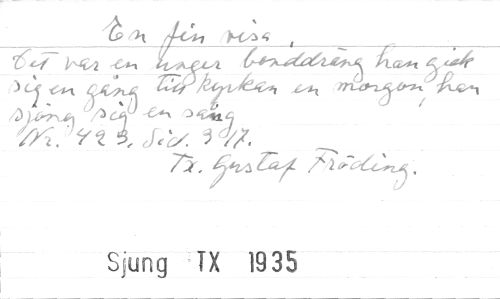 En fin visa.
Det var en unger bonddräng han gick
sig en gång till kyrkan en morgon, han
sjöng sig en sång
Nr. 423, Sid. 317.
Tx. Gustaf Fröding.
Sjung TX 1935